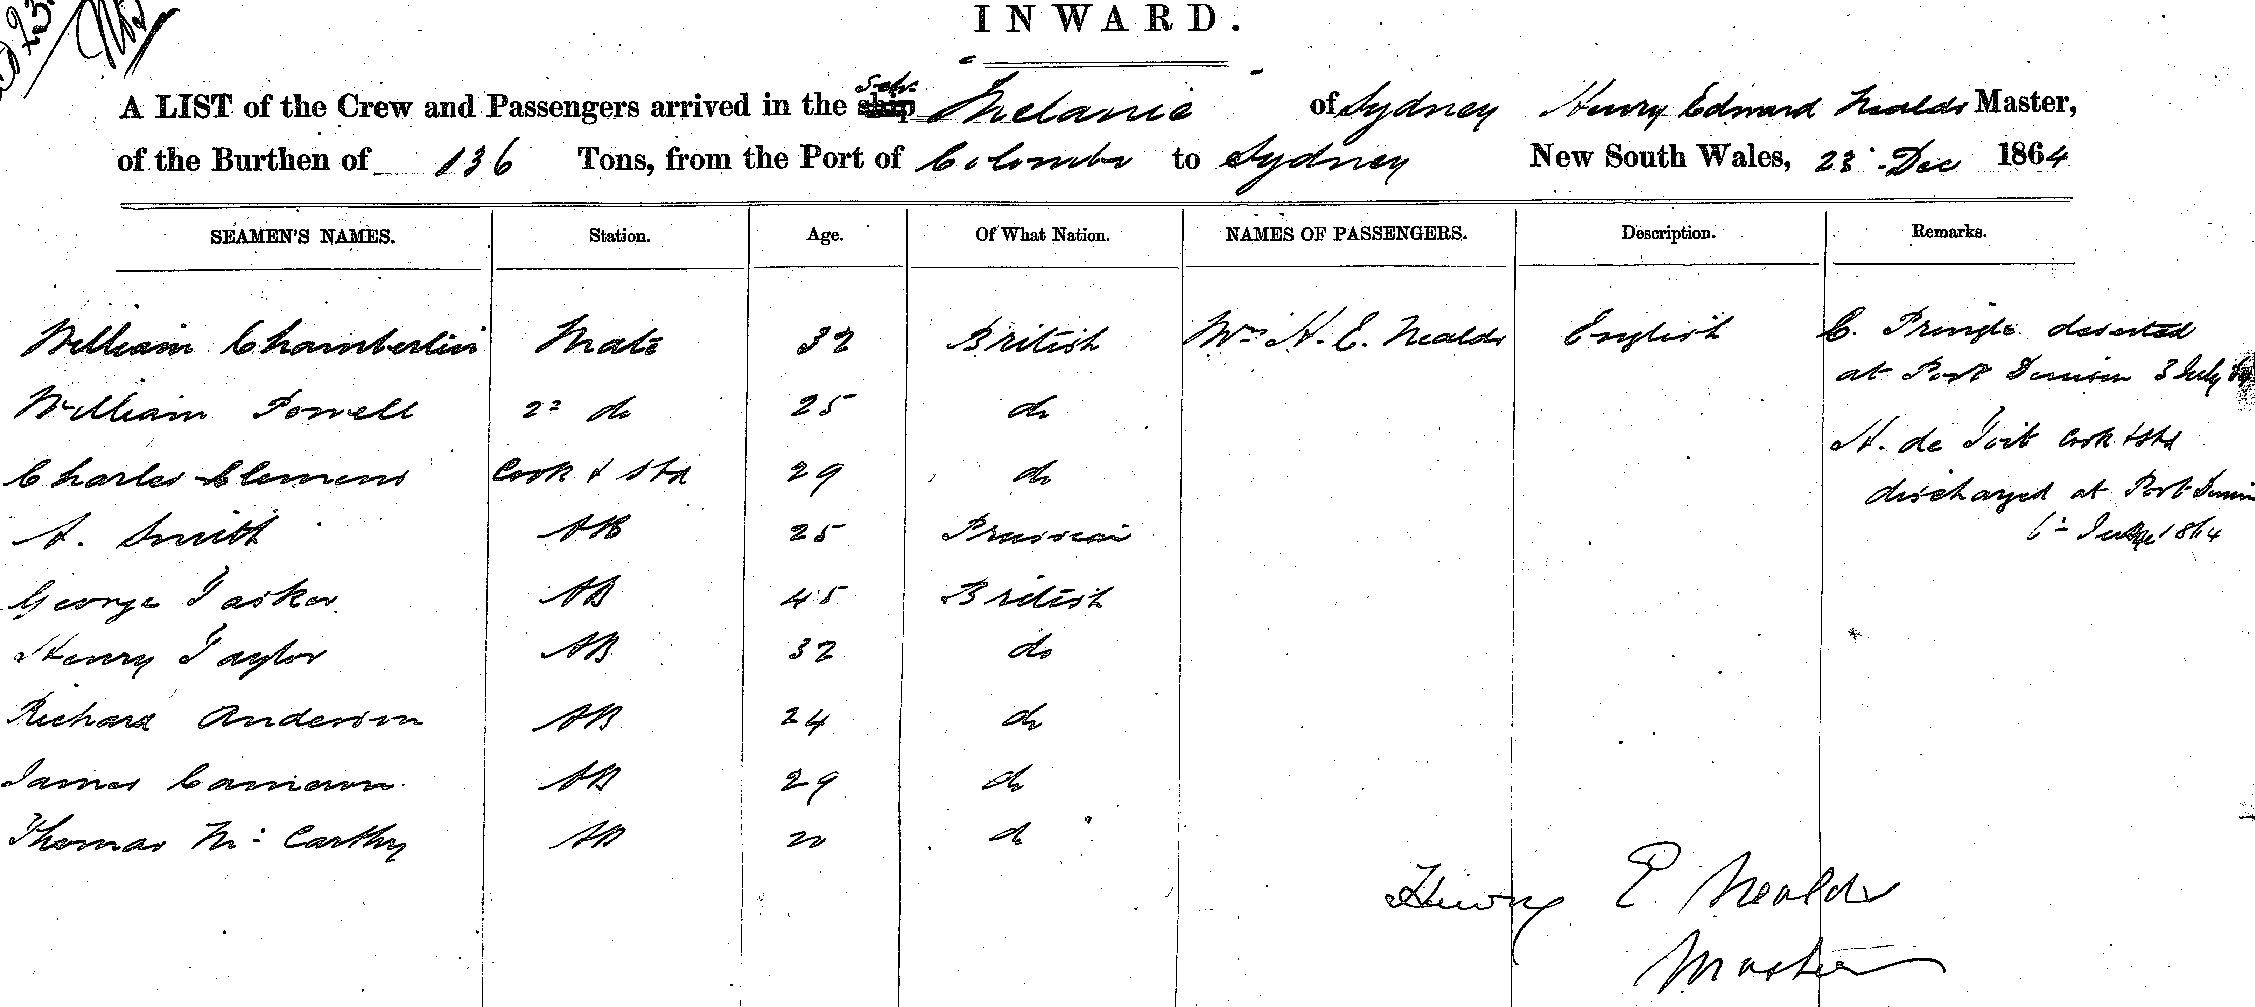 INWARD.
A LIST of the Crew and Passengers arrived in the Schr Melanie of Sydney Henry Edward Nealds Master,
of the Burthen of 136 Tons, from the Port of Colombo to Sydney New South Wales, 23 Dec 1864
SEAMEN'S NAMES. Station. Age. Of What Nation. NAMES OF PASSENGERS. Description. Remarks.
William Chamberlin Mate 32 British Mrs H. E. Nealds English C. Pringle deserted
at Port Denison 3 July 64
William Powell 2d do 25 do
H. de Toit Cook & Std
Charles Clemens Cook & Std 29 do
discharged at Port Denison
A. Smith AB 25 Prussian 6th 1864
George Tasker AB 45 British
Henry Taylor AB 32 do
Richard Anderson AB 24 do
James Cameron AB 29 do
Thomas Mc Carthy AB 20 do
Henry E Nealds
Master